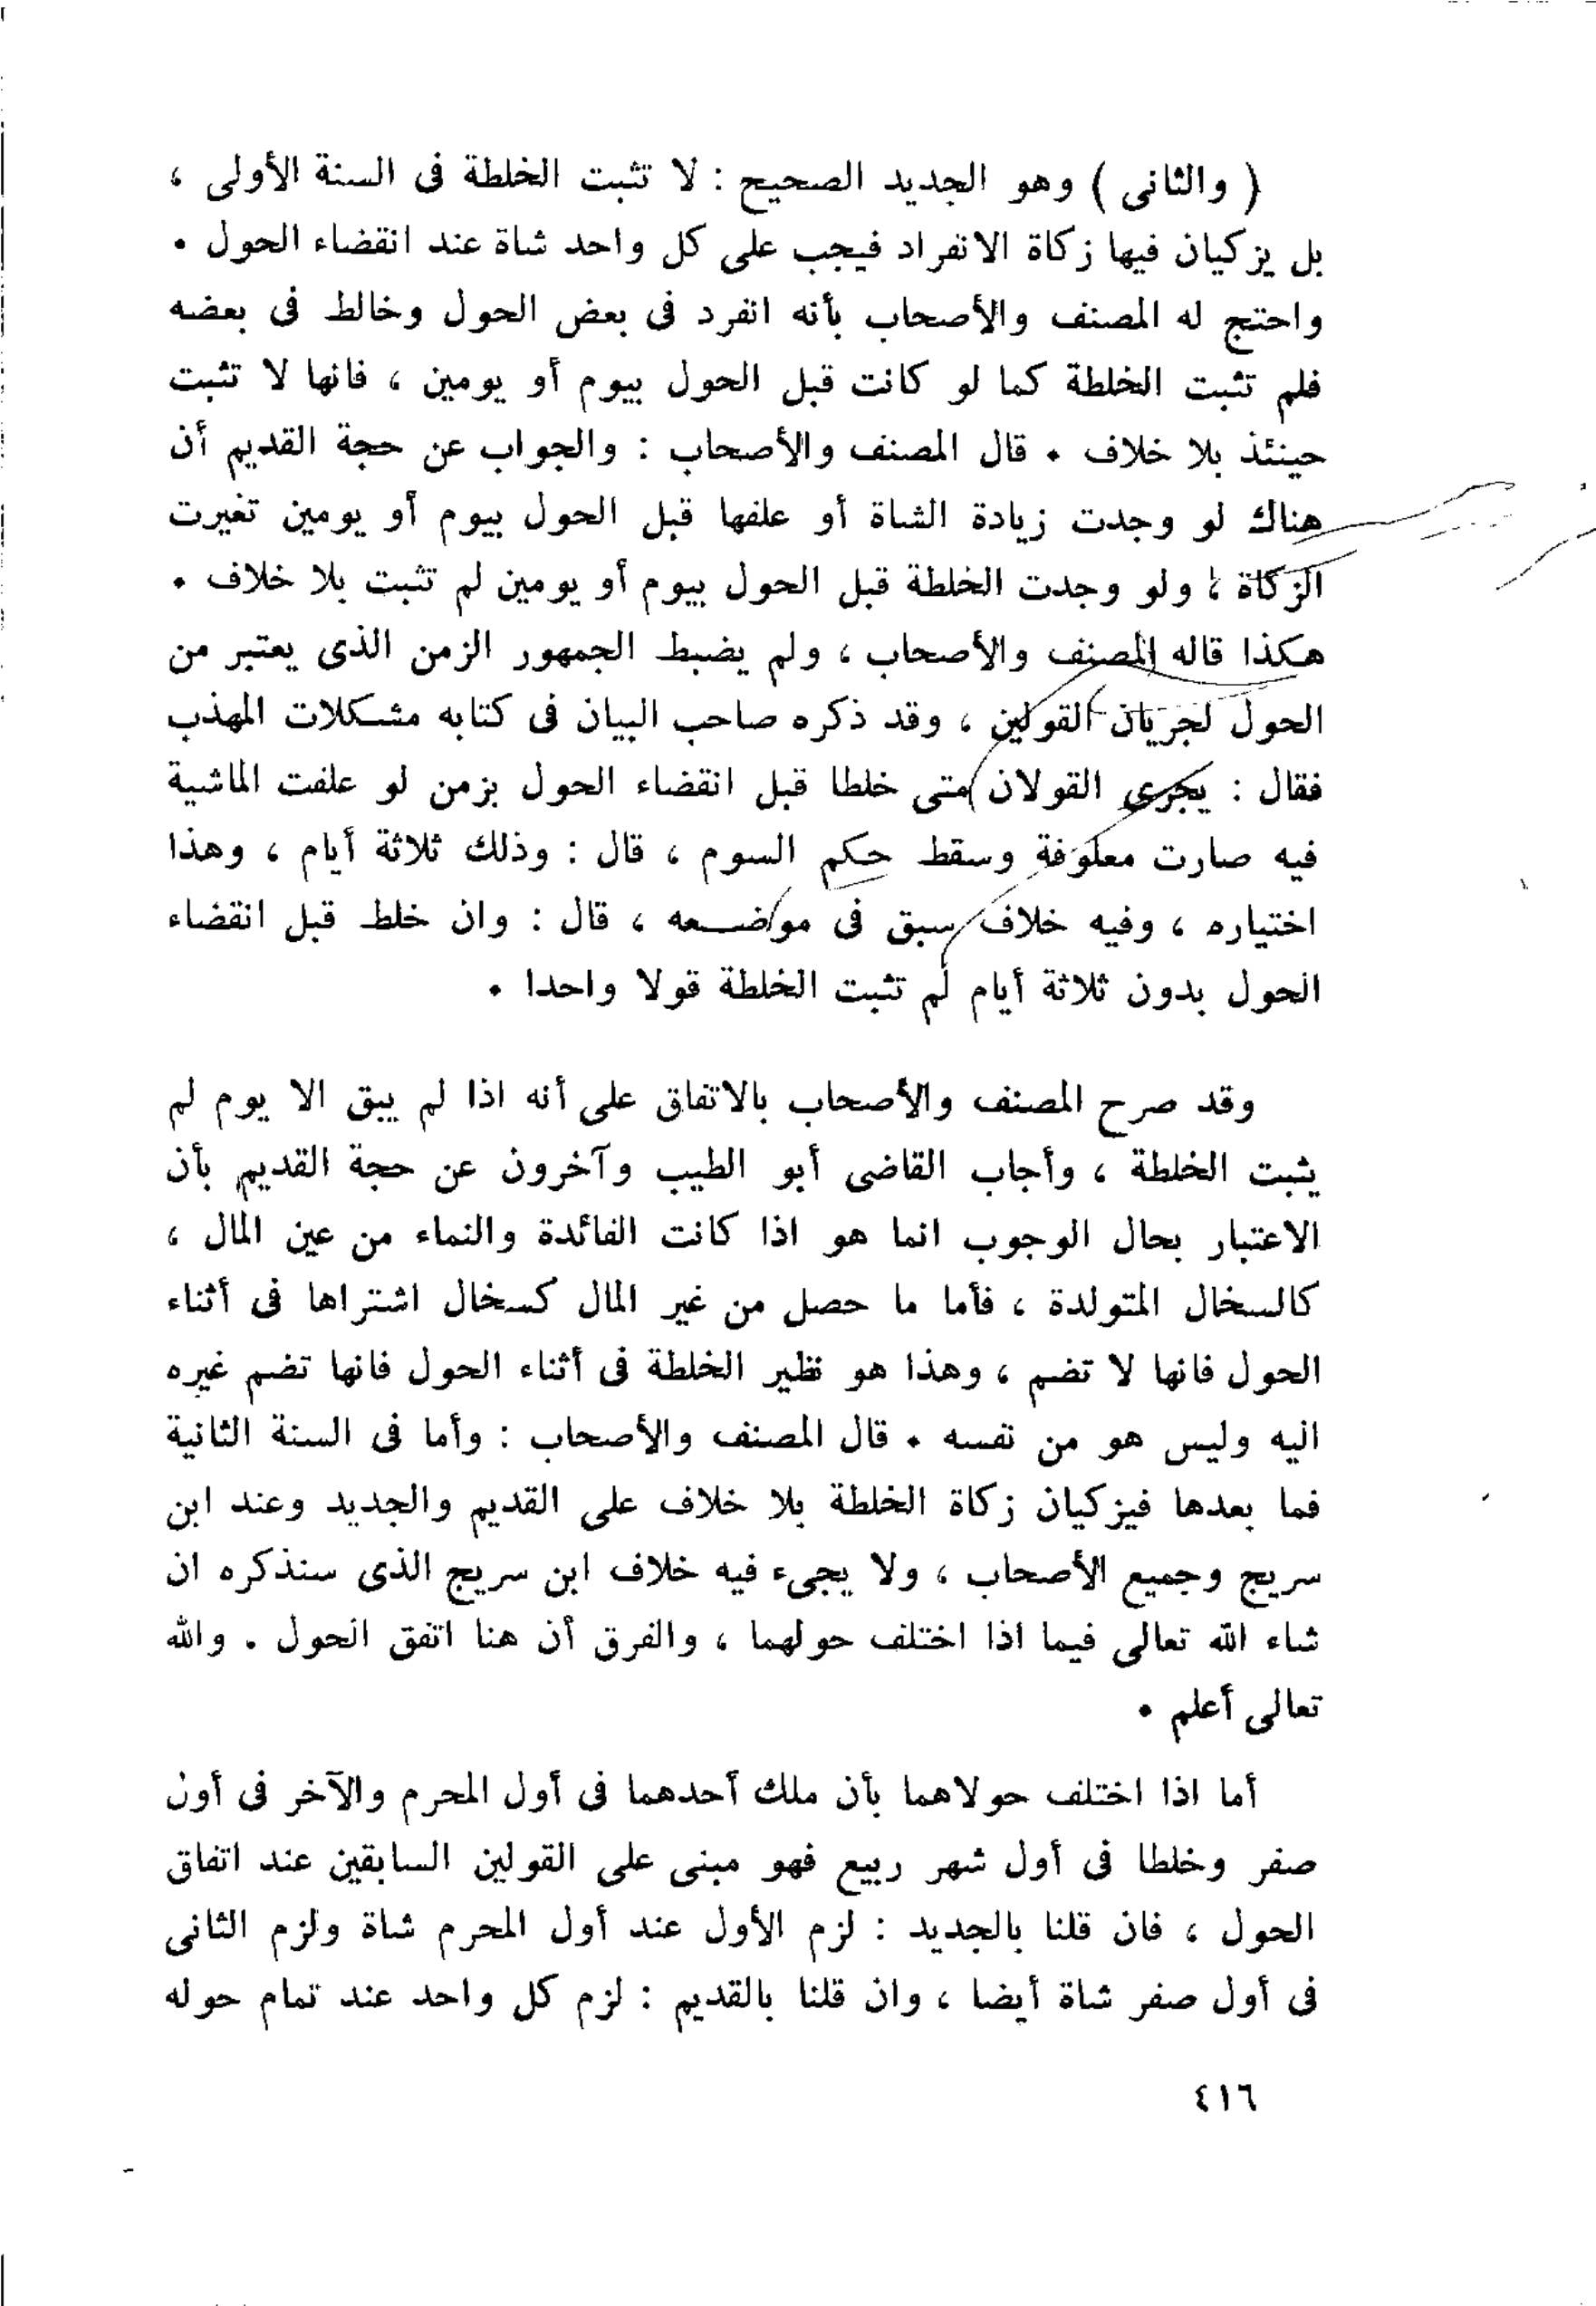 ( والثانى ) وهو الجديد الصحيح : لا تثبت الخلطة فى السنة الأولى ،
بل يزكيان فيها زكاة الانفراد فيجب على كل واحد شاة عند انقضاء الحول .
واحتج له المصنف والأصحاب بأنه انفرد فى بعض الحول وخالط فى بعضه
فلم تثبت الخلطة كما لو كانت قبل الحول بيوم أو يومين ، فانها لا تثبت
حينئذ بلا خلاف . قال المصنف والأصحاب : والجواب عن حجة القديم أن
هناك لو وجدت زيادة الشاة أو علفها قبل الحول بيوم أو يومين تغيرت
الزكاة ، ولو وجدت الخلطة قبل الحول بيوم أو يومين لم تثبت بلا خلاف .
هكذا قاله المصنف والأصحاب ، ولم يضبط الجمهور الزمن الذى يعتبر من
الحول لجريان القولين ، وقد ذكره صاحب البيان فى كتابه مشكلات المهذب
فقال : يجرى القولان متى خلطا قبل انقضاء الحول بزمن لو علفت الماشية
فيه صارت معلوفة وسقط حكم السوم ، قال : وذلك ثلاثة أيام ، وهذا
اختياره ، وفيه خلاف سبق فى موضعه ، قال : وان خلط قبل انقضاء
الحول بدون ثلاثة أيام لم تثبت الخلطة قولا واحدا .
وقد صرح المصنف والأصحاب بالاتفاق على أنه اذا لم يبق الا يوم لم
يثبت الخلطة ، وأجاب القاضى أبو الطيب وآخرون عن حجة القديم بأن
الاعتبار بحال الوجوب انما هو اذا كانت الفائدة والنماء من عين المال ،
كالسخال المتولدة ، فأما ما حصل من غير المال كسخال اشتراها فى أثناء
الحول فانها لا تضم ، وهذا هو نظير الخلطة فى أثناء الحول فانها تضم غيره
اليه وليس هو من نفسه . قال المصنف والأصحاب : وأما فى السنة الثانية
فما بعدها فيزكيان زكاة الخلطة بلا خلاف على القديم والجديد وعند ابن
سريج وجميع الأصحاب ، ولا يجىء فيه خلاف ابن سريج الذى سنذكره ان
شاء الله تعالى فيما اذا اختلف حولهما ، والفرق أن هنا اتفق الحول . والله
تعالى أعلم .
أما اذا اختلف حولاهما بأن ملك أحدهما فى أول المحرم والآخر فى أول
صفر وخلطا فى أول شهر ربيع فهو مبنى على القولين السابقين عند اتفاق
الحول ، فان قلنا بالجديد : لزم الأول عند أول المحرم شاة ولزم الثانى
فى أول صفر شاة أيضا ، وان قلنا بالقديم : لزم كل واحد عند تمام حوله
٤١٦